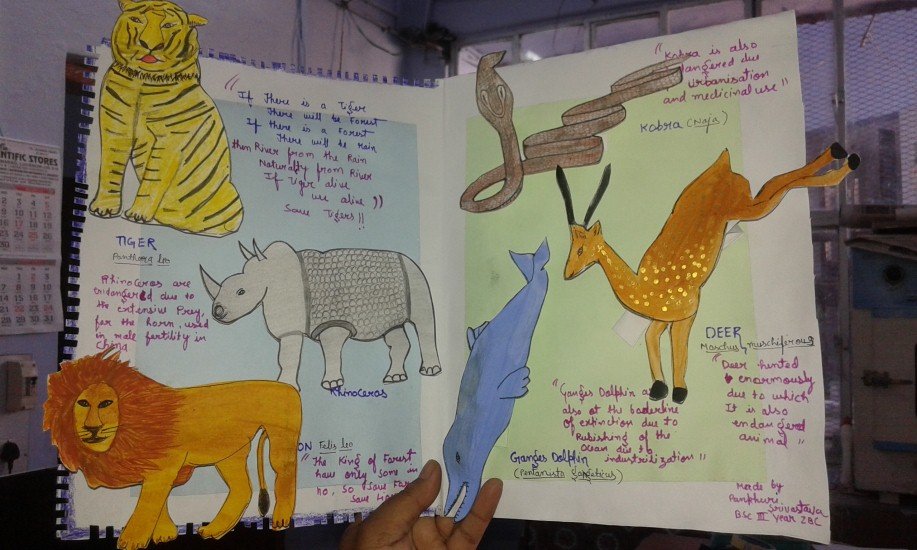 "If There is a Tiger
There will be Forest
If there is a Forest
There will be rain
then River from the Rain
Naturally from River
If Tiger alive
we alive"
Save Tigers!!
TIGER
Panthera leo
Rhinoceros are
endangered due to
the extensive Prey,
for the horn, used
in male fertility in
China
Rhinoceros
ON Felis leo
"The King of Forest
have only some in
no, So Save
Save
"Kobra is also
dangered due
Urbanisation
and medicinal use"
Kobra (Naja)
DEER
Moschus muschiferous
"Deer hunted
enormously
due to which
It is also
endangered
animal"
"Ganges Dolphin a
also at the boderline
of extinction due to
Rubishing of the
Ocean due to
industrilization"
Ganges Dolphin
(Pentanista gangeticus)
Made by
Pankhuri
Srivastava
BSc III year ZBC
NTIFIC STORES